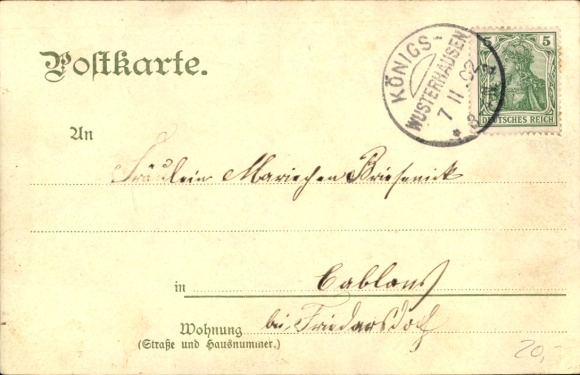 Postkarte.
KÖNIGS-
WUSTERHAUSEN
7 11 02
5 5
DEUTSCHES REICH
An
Fräulein Mariechen Briesenick
in Cablow
bei Friedersdorf
Wohnung
(Straße und Hausnummer.)
20,-